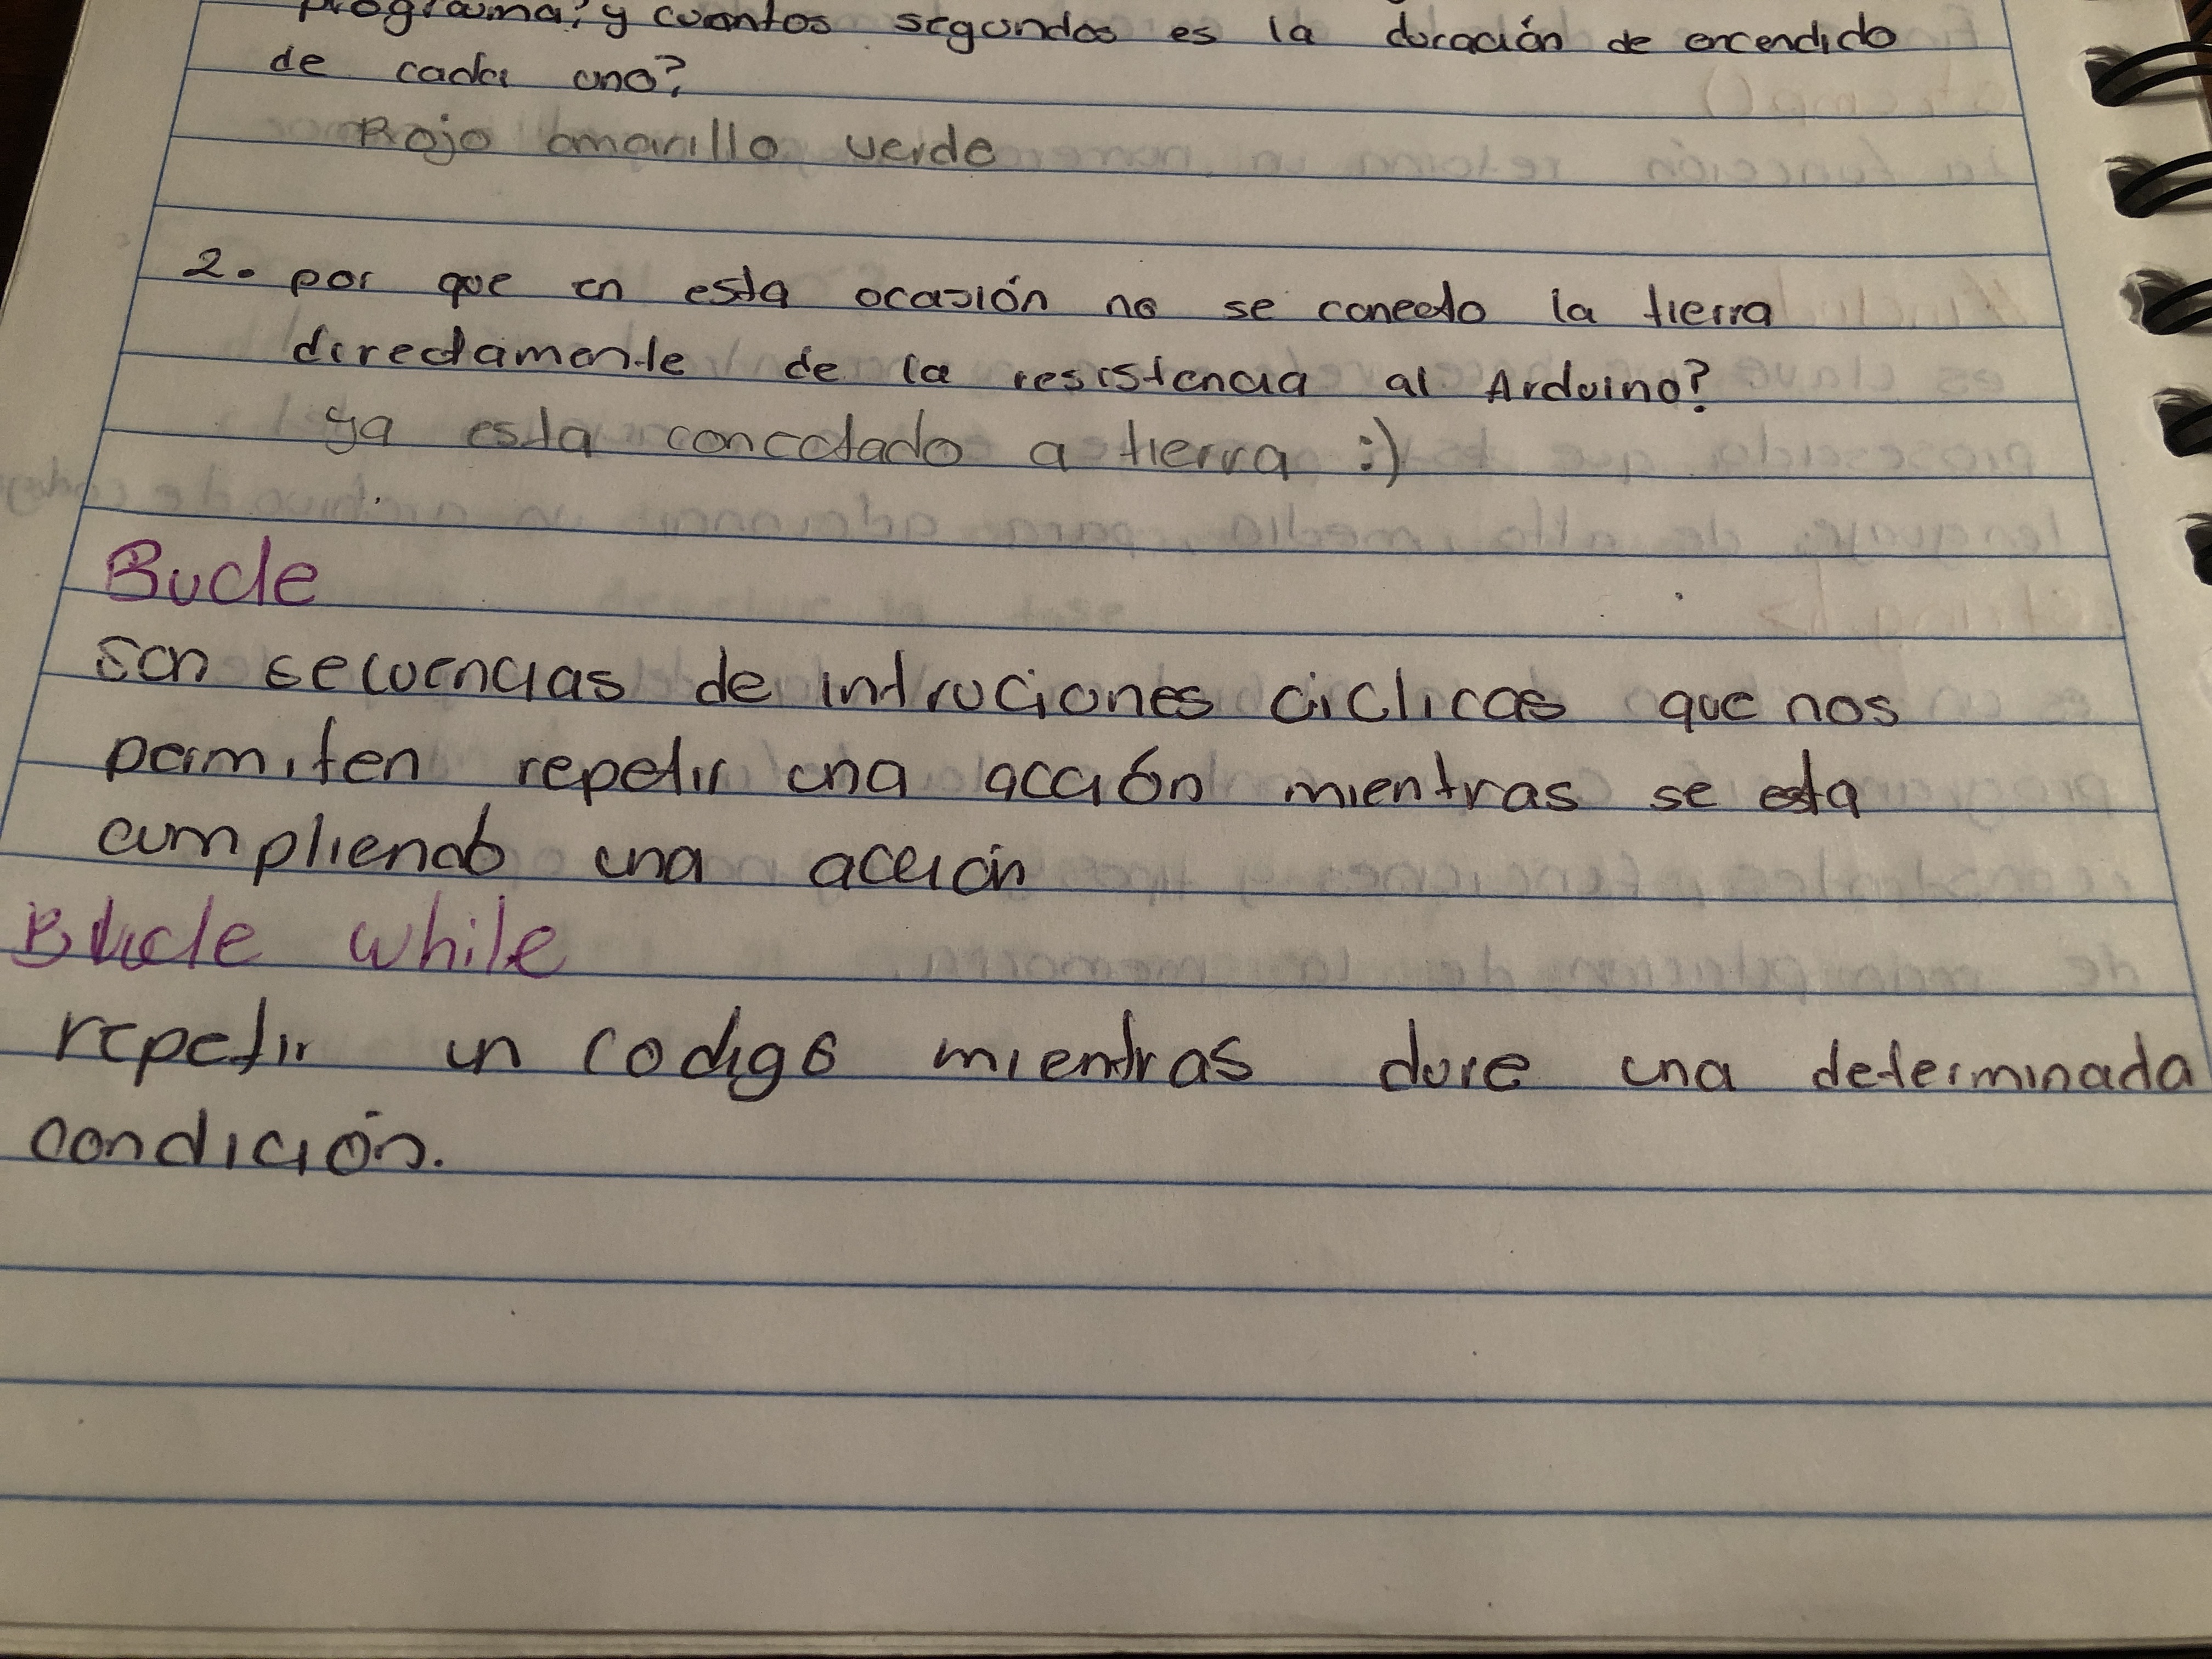 programa? y cuantos segundos es la duración de encendido
de cada uno?
Rojo amarillo verde
2. por que en esta ocasión no se conecto la tierra
directamente de la resistencia al Arduino?
ya esta conectado a tierra :)
Bucle
son secuencias de intruciones ciclicas que nos
permiten repetir una acción mientras se esta
cumpliendo una acción
Bucle while
repetir un codigo mientras dure una determinada
condición.